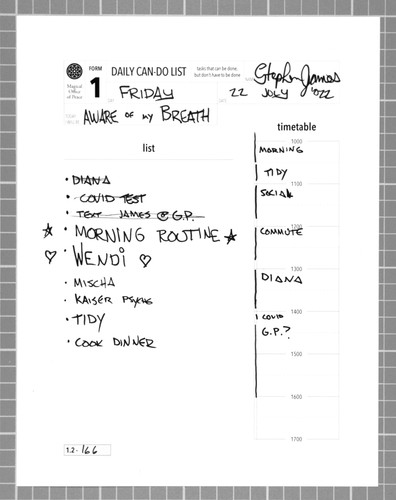 FORM
1
Magical
Office
of Peace
DAILY CAN-DO LIST
tasks that can be done,
but don't have to be done
Stephen James
FRIDAY
22 JULY '022
AWARE OF MY BREATH
list
timetable
• DIANA
• COVID TEST
• TEXT JAMES @ G.P.
☆ • MORNING ROUTINE ☆
♡ • WENDI ♡
• MISCHA
• KAISER PSYCHE
• TIDY
• COOK DINNER
1000
MORNING
TIDY
1100
SOCIAL
1200
COMMUTE
1300
DIANA
1400
COVID
G.P.?
1500
1600
1700
1.2 - 166